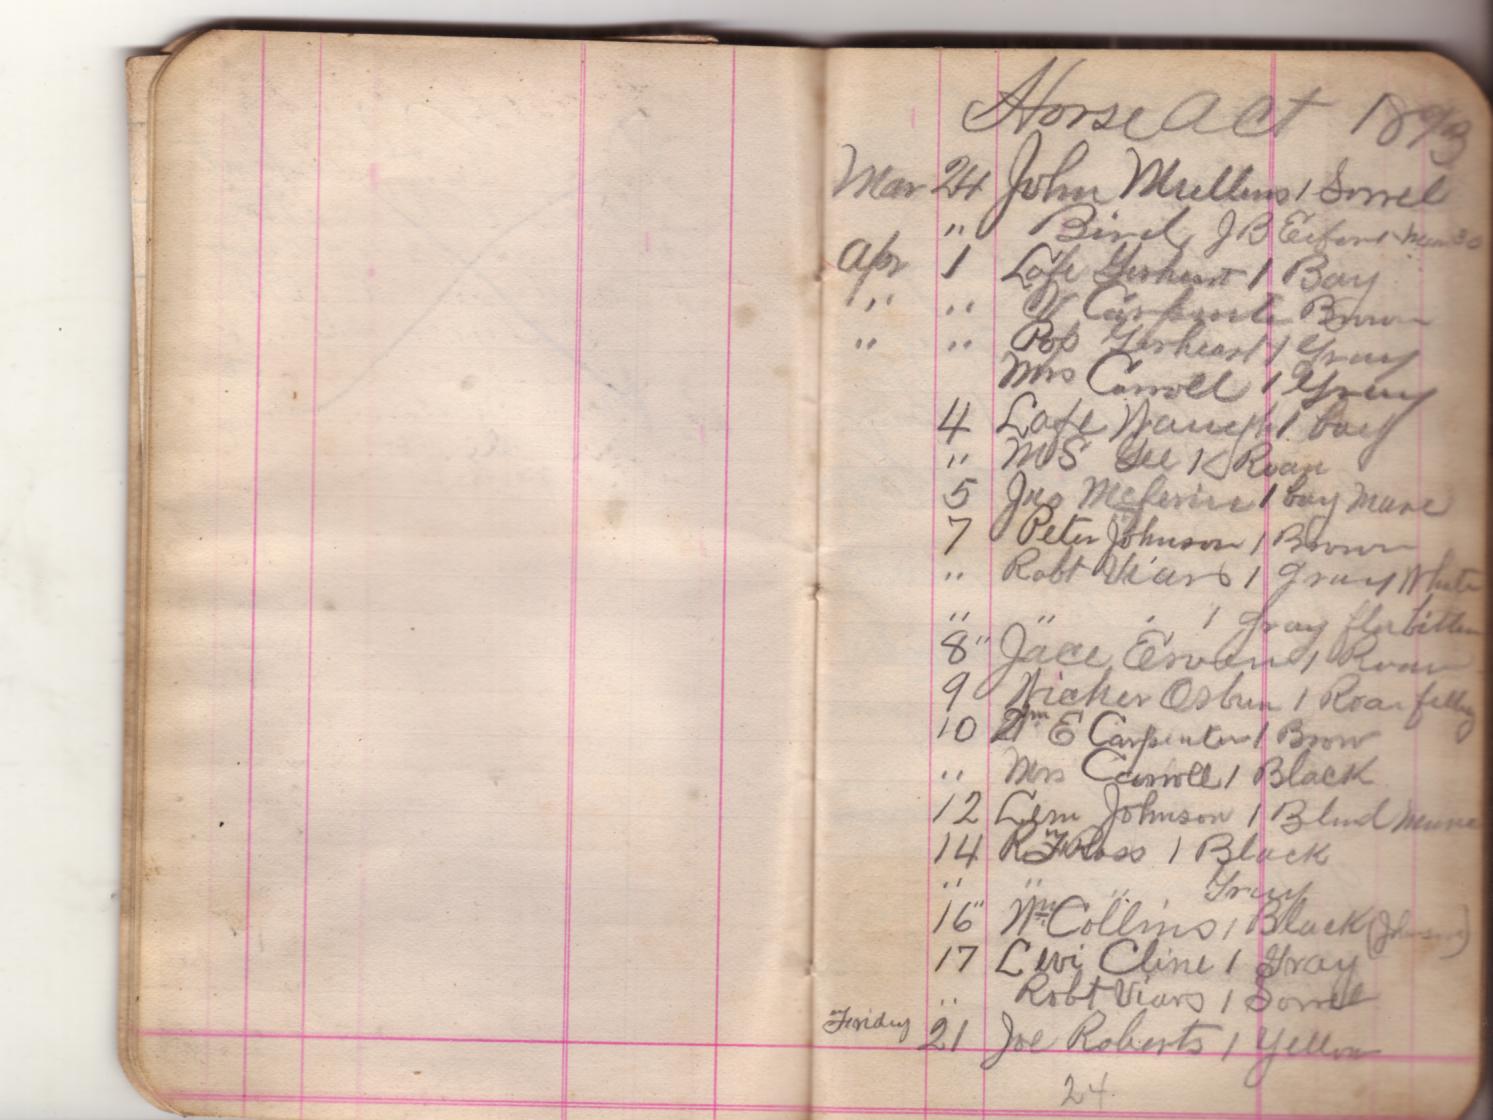 Horse Act 1893
Mar 24 John Mullens 1 Sorrel
" Bird, J B 1 Mar 30
Apr 1 Lafe Gerheart 1 Bay
" " W Carpenter Brown
" " Pop Gerheart 1 Gray
Mrs Carroll 1 Gray
4 Lafe Waugh 1 bay
" M S Gee 1 Roan
5 Jno 1 bay Mare
7 Peter Johnson 1 Brown
" Robt Viars 1 Gray White
" " " 1 Gray fleabitten
8 " Jace Ervin 1 Roan
9 Wicker Osbun 1 Roan filley
10 Wm E Carpenter 1 Brow
" Mrs Carroll 1 Black
12 Lem Johnson 1 Blind Mare
14 R F Ross 1 Black
" " " Gray
16 " Wm Collins 1 Black (Johnson)
17 Levi Cline 1 Gray
" Robt Viars 1 Sorrel
Friday 21 Joe Roberts 1 Yellow
24